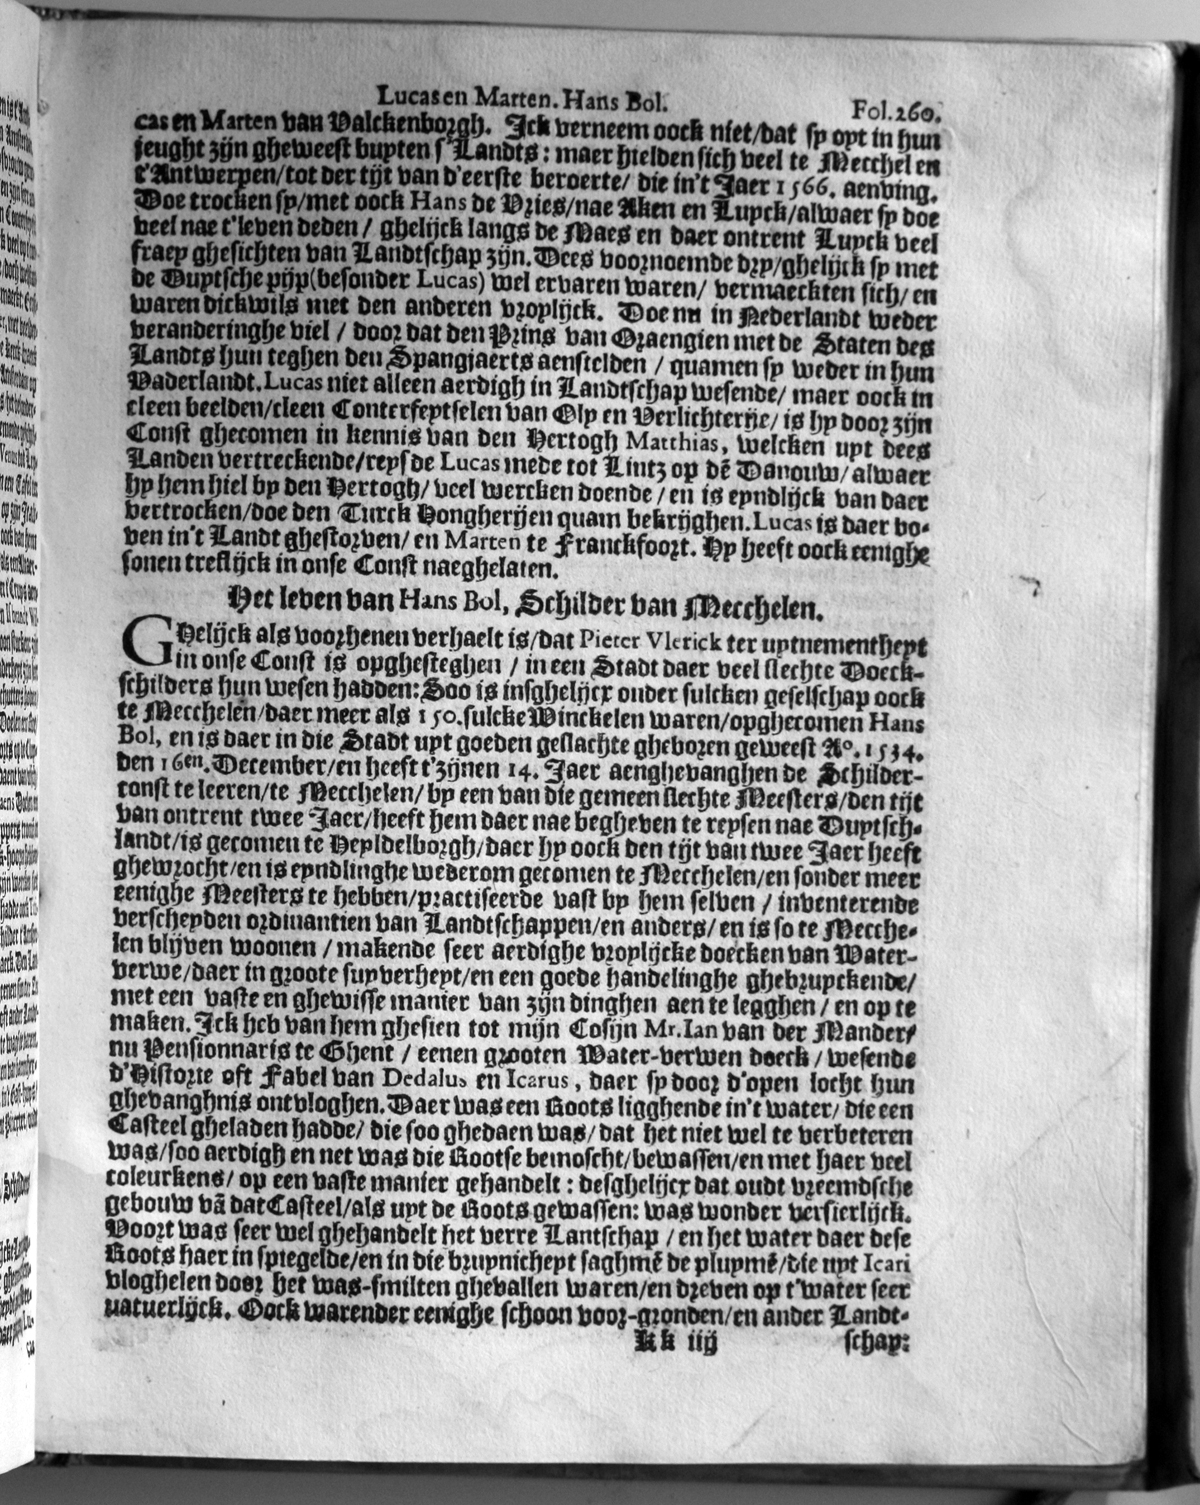 Lucas en Marten. Hans Bol. Fol.260.
cas en Marten van Valckenborgh. Ick verneem oock niet/dat sy oyt in hun
jeught zijn gheweest buyten s'Landts: maer hielden sich veel te Mecchel en
t'Antwerpen/tot der tijt van d'eerste beroerte/ die in't Jaer 1566. aenving.
Doe trocken sy/met oock Hans de Vries/nae Aken en Luyck/alwaer sy doe
veel nae t'leven deden/ ghelijck langs de Maes en daer ontrent Luyck veel
fraey ghesichten van Landtschap zijn. Dees voornoemde dry/ghelijck sy met
de Duytsche pijp(besonder Lucas) wel ervaren waren/ vermaeckten sich/ en
waren dickwils met den anderen vroplijck. Doe nu in Nederlandt weder
veranderinghe viel / door dat den Prins van Oraengien met de Staten des
Landts hun teghen den Spangjaerts aenstelden / quamen sy weder in hun
Vaderlandt. Lucas niet alleen aerdigh in Landtschap wesende/ maer oock in
cleen beelden/cleen Conterfeytselen van Oly en Verlichterije/ is hy door zijn
Const ghecomen in kennis van den Hertogh Matthias, welcken uyt dees
Landen vertreckende/reysde Lucas mede tot Lintz op dē Danouw/ alwaer
hy hem hiel by den Hertogh/ veel wercken doende / en is eyndlijck van daer
vertrocken/doe den Turck Hongherijen quam bekrijghen. Lucas is daer bo-
ven in't Landt ghestorven/ en Marten te Franckfoort. Hy heeft oock eenighe
sonen treflijck in onse Const naeghelaten.
Het leven van Hans Bol, Schilder van Mecchelen.
GHelijck als voorhenen verhaelt is/dat Pieter Vlerick ter uytnementheyt
in onse Const is opghesteghen / in een Stadt daer veel slechte Doeck-
schilders hun wesen hadden: Soo is insghelijcx onder sulcken geselschap oock
te Mecchelen/daer meer als 150. sulcke Winckelen waren/opghecomen Hans
Bol, en is daer in die Stadt uyt goeden geslachte gheboren geweest Aº. 1534.
den 16en. December/en heeft t'zijnen 14. Jaer aenghevanghen de Schilder-
const te leeren/te Mecchelen/ by een van die gemeen slechte Meesters/den tijt
van ontrent twee Jaer/heeft hem daer nae begheven te reysen nae Duytsch-
landt/is gecomen te Heyldelborgh/daer hy oock den tijt van twee Jaer heeft
ghewrocht/en is eyndlinghe wederom gecomen te Mecchelen/en sonder meer
eenighe Meesters te hebben/practiseerde vast by hem selven / inventerende
verscheyden ordinantien van Landtschappen/en anders/ en is so te Mecche-
len blijven woonen / makende seer aerdighe vroplijcke doecken van Water-
verwe/daer in groote suyverheyt/en een goede handelinghe ghebruyckende/
met een vaste en ghewisse manier van zijn dinghen aen te legghen / en op te
maken. Ick heb van hem ghesien tot mijn Cosijn Mr. Ian van der Mander/
nu Pensionnaris te Ghent / eenen grooten Water-verwen doeck / wesende
d'Historie oft Fabel van Dedalus en Icarus, daer sy door d'open locht hun
ghevanghnis ontvloghen. Daer was een Roots ligghende in't water/ die een
Casteel gheladen hadde/ die soo ghedaen was/ dat het niet wel te verbeteren
was/soo aerdigh en net was die Rootse bemoscht/bewassen/en met haer veel
coleurkens/ op een vaste manier gehandelt : desghelijcx dat oudt vreemdsche
gebouw vā dat Casteel/als uyt de Roots gewassen: was wonder versierlijck.
Voort was seer wel ghehandelt het verre Lantschap / en het water daer dese
Roots haer in spiegelde/en in die bruynicheyt saghmē de pluymē/die uyt Icari
vloghelen door het was-smilten ghevallen waren/en dreven op t'water seer
natuerlijck. Oock warender eenighe schoon voor-gronden/en ander Landt-
Kk iij schap: